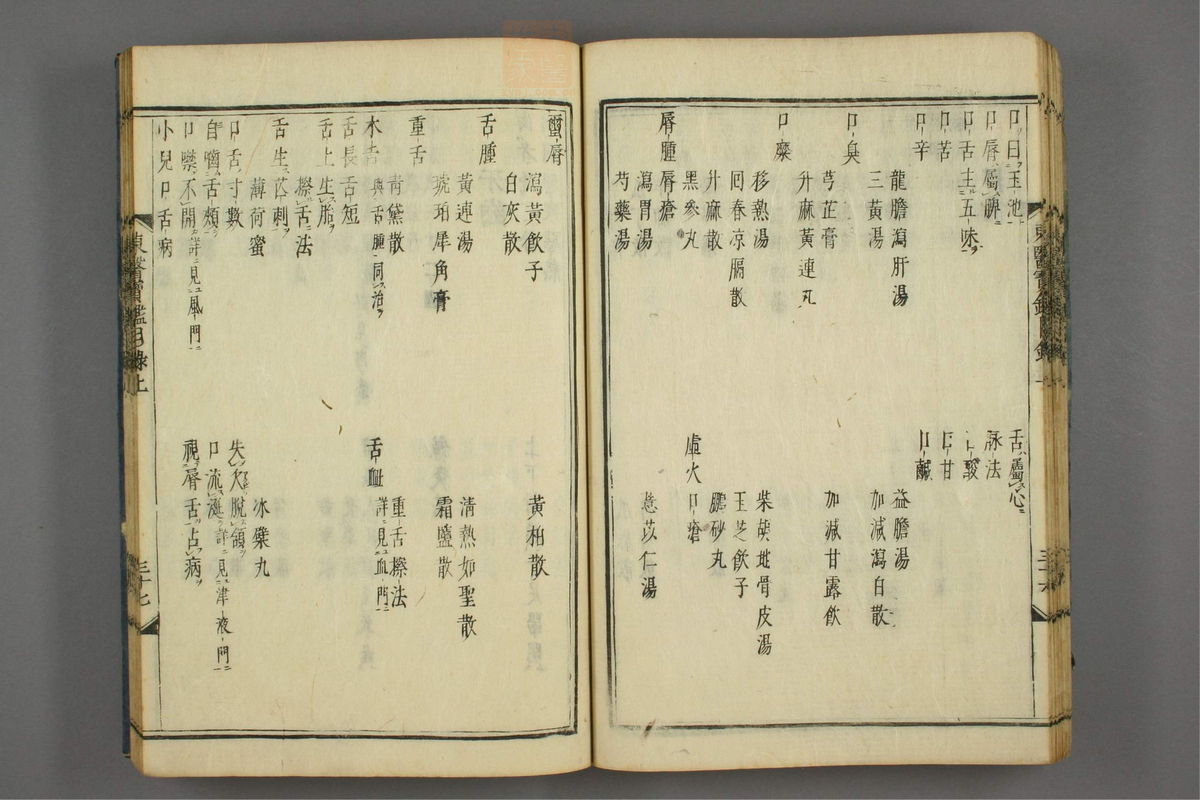 口曰玉池 舌屬心
口脣屬脾 診法
口舌主五味 口酸
口苦 口甘
口辛 口鹹
龍膽瀉肝湯 益膽湯
三黃湯 加減瀉白散
口臭
芎芷膏 加減甘露飲
升麻黃連丸
口糜
移熱湯 柴胡地骨皮湯
回春凉膈散 玉芝飲子
升麻散 鵬砂丸
黑參丸 虛火口瘡
脣腫脣瘡
瀉胃湯 薏苡仁湯
芍藥湯
繭脣
瀉黃飲子 黃柏散
白灰散
舌腫
黃連湯 清熱如聖散
琥珀犀角膏 霜鹽散
重舌
青黛散 重舌擦法
木舌與舌腫同治 舌衄詳見血門
舌長舌短
舌上生胎
擦舌法
舌生芒刺
薄荷蜜 氷蘗丸
口舌寸數 失欠脫頷
自囓舌頰 口流涎詳見津液門
口噤不開詳見風門 視脣舌占病
小兒口舌病
東醫寶鑑目錄上 三十七